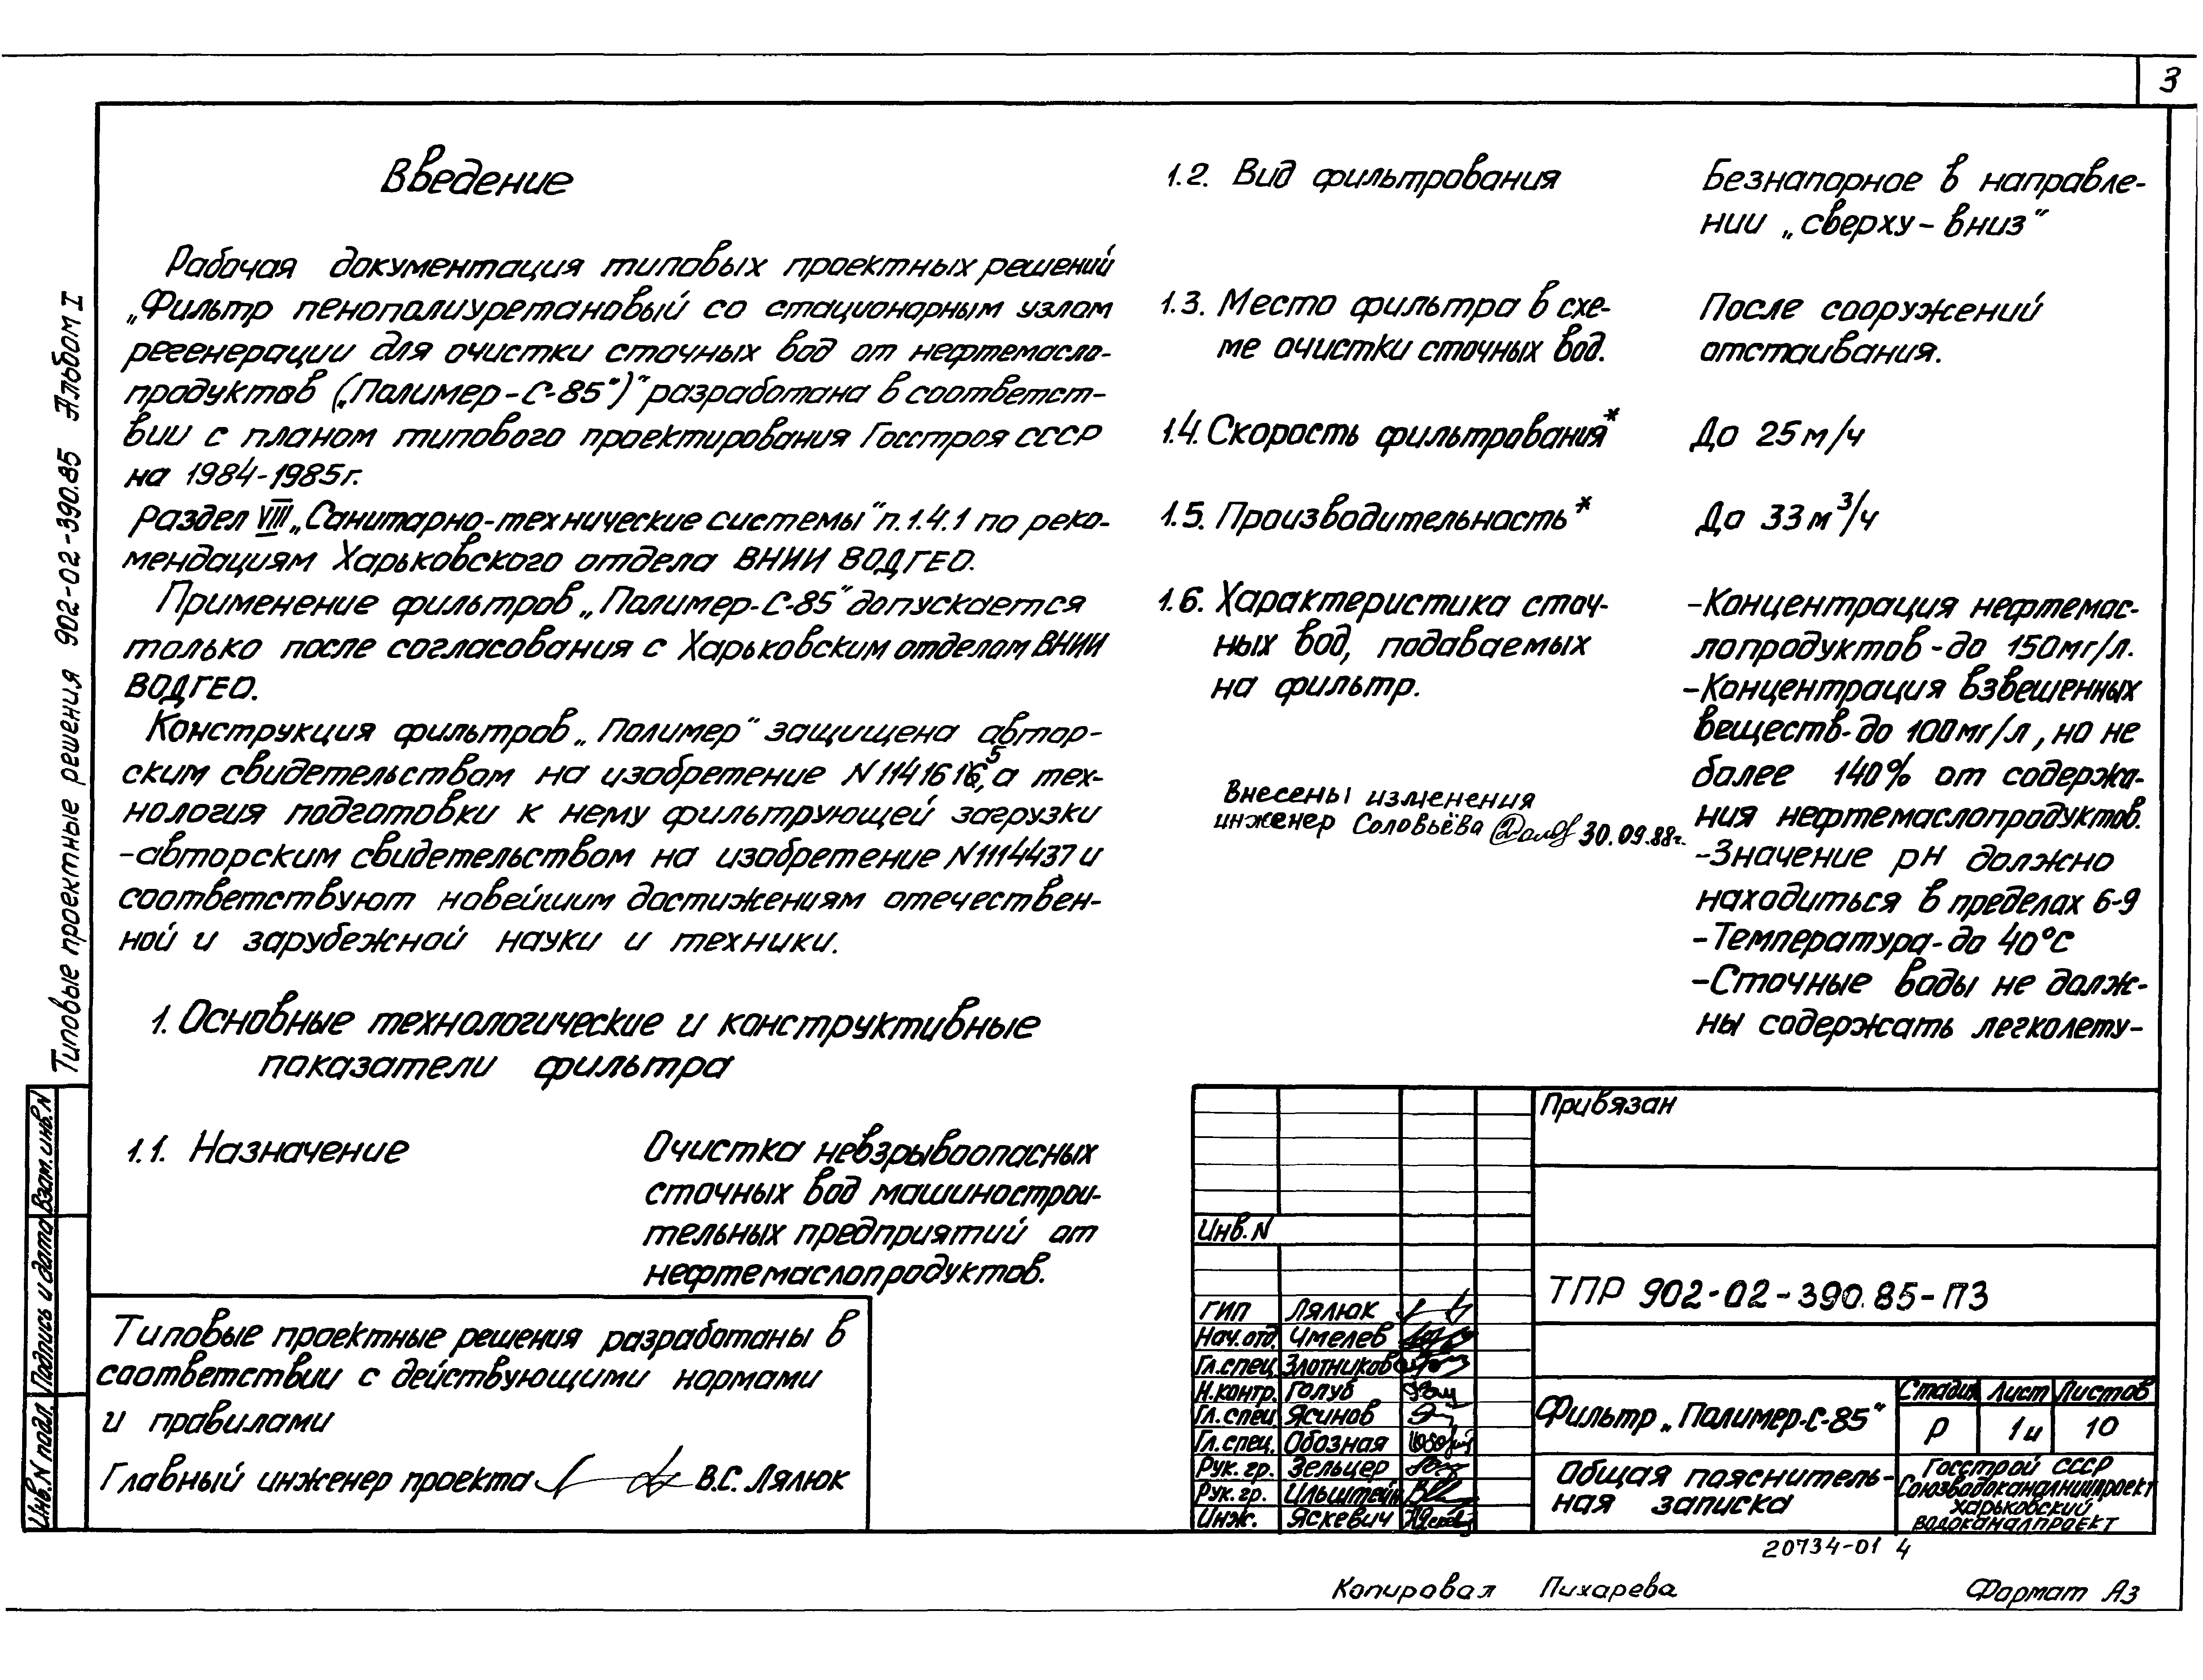 3
Типовые проектные решения 902-02-390.85 Альбом I
Введение
Рабочая документация типовых проектных решений
„Фильтр пенополиуретановый со стационарным узлом
регенерации для очистки сточных вод от нефтемасло-
продуктов („Полимер-С-85")" разработана в соответст-
вии с планом типового проектирования Госстроя СССР
на 1984-1985г.
Раздел VIII „Санитарно-технические системы" п.1.4.1 по реко-
мендациям Харьковского отдела ВНИИ ВОДГЕО.
Применение фильтров „Полимер-С-85" допускается
только после согласования с Харьковским отделом ВНИИ
ВОДГЕО.
Конструкция фильтров „Полимер" защищена автор-
ским свидетельством на изобретение N 1141616, а тех-
5
нология подготовки к нему фильтрующей загрузки
-авторским свидетельством на изобретение N1114437 и
соответствуют новейшим достижениям отечествен-
ной и зарубежной науки и техники.
1. Основные технологические и конструктивные
показатели фильтра
1.1. Назначение
Очистка невзрывоопасных
сточных вод машинострои-
тельных предприятий от
нефтемаслопродуктов.
Типовые проектные решения разработаны в
соответствии с действующими нормами
и правилами
Главный инженер проекта В.С. Лялюк
1.2. Вид фильтрования
Безнапорное в направле-
нии „сверху-вниз"
1.3. Место фильтра в схе-
ме очистки сточных вод.
После сооружений
отстаивания.
1.4. Скорость фильтрования*
До 25 м/ч
1.5. Производительность*
До 33 м³/ч
1.6. Характеристика сточ-
ных вод, подаваемых
на фильтр.
-Концентрация нефтемас-
лопродуктов-до 150мг/л.
-Концентрация взвешенных
веществ-до 100мг/л, но не
более 140% от содержа-
ния нефтемаслопродуктов.
-Значение рН должно
находиться в пределах 6-9
-Температура-до 40°С
-Сточные воды не долж-
ны содержать легколету-
Внесены изменения
инженер Соловьёва 30.09.88г.
Привязан
Инв.N
ТПР 902-02-390.85-ПЗ
ГИП Лялюк
Нач.отд. Чмелев
Гл.спец. Злотников
Н.контр. Голуб
Гл.спец. Ясинов
Гл.спец. Обозная
Рук.гр. Зельцер
Рук.гр. Ильштейн
Инж. Яскевич
Фильтр „Полимер-С-85"
Стадия Лист Листов
Р 1и 10
Общая пояснитель-
ная записка
Госстрой СССР
Союзводоканалниипроект
Харьковский
Водоканалпроект
Взам.инв.N
Подпись и дата
Инв.N подл.
20734-01 4
Копировал Пихарева Формат А3